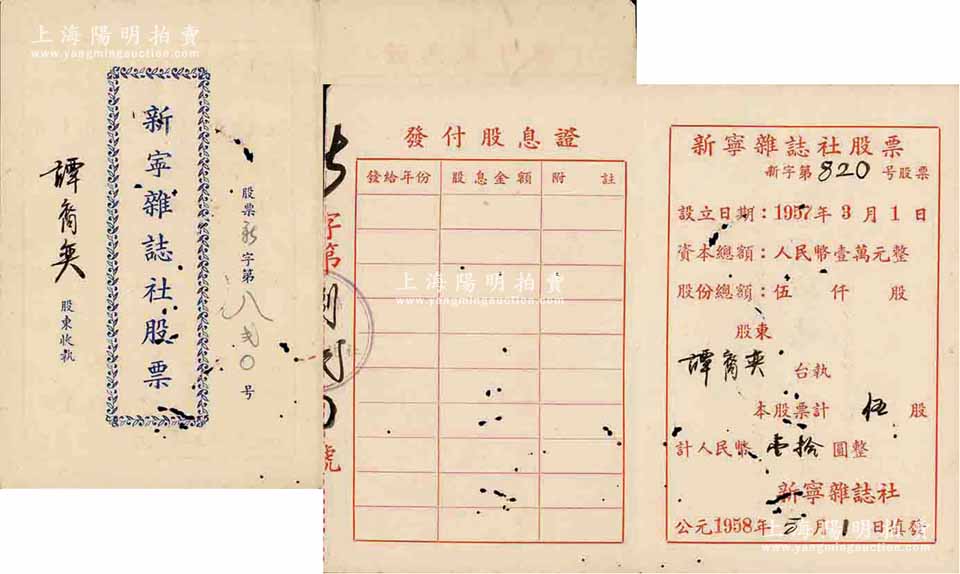 上海陽明拍賣
www.yangmingauction.com
股票新字第八弍〇号
新寧雜誌社股票
譚裔奕 股東收執
發付股息證
發給年份 股息金額 附註
字第
號
上海陽明拍賣
www.yangmingauction.com
新寧雜誌社股票
新字第820号股票
設立日期：1957年3月1日
資本總額：人民幣壹萬元整
股份總額：伍仟股
股東
譚裔奕 台執
本股票計 伍 股
計人民幣 壹拾 圓整
新寧雜誌社
公元1958年3月1日填發
上海陽明拍賣
www.yangmingauction.com